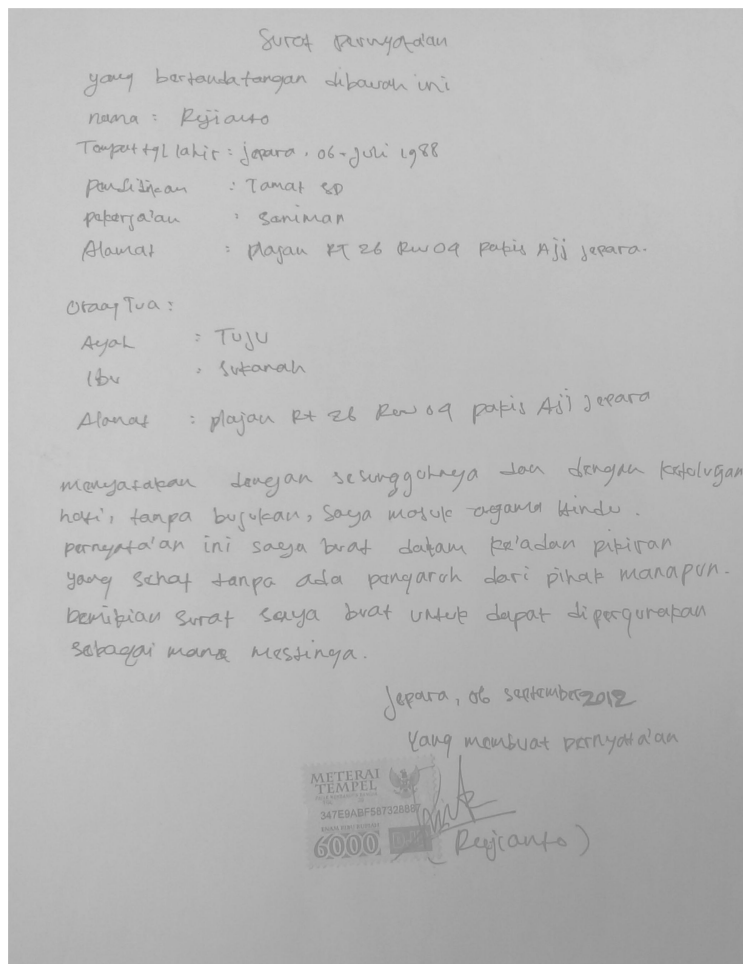 Surat Pernyata'an
yang bertandatangan dibawah ini
nama : Rejianto
Tempat tgl lahir : jepara, 06-Juli 1988
Pendidikan : Tamat SD
pekerja'an : Seniman
Alamat : Plajan RT 26 RW 09 pakis Ajj jepara.
Orang Tua :
Ayah : TUJU
Ibu : Sukanah
Alamat : plajan Rt 26 Rw 09 pakis Aji Jepara
menyatakan dengan sesungguhnya dan dengan ketulugan
hati, tanpa bujukan, saya masuk agama Hindu.
pernyata'an ini saya buat dalam ke'adan pikiran
yang sehat tanpa ada pengaruh dari pihak manapun.
Demikian surat saya buat untuk dapat dipergunakan
sebagai mana mestinya.
Jepara, 06 september 2012
Yang membuat pernyata'an
METERAI
TEMPEL
347E9ABF587328887
ENAM RIBU RUPIAH
6000
(Rejianto)